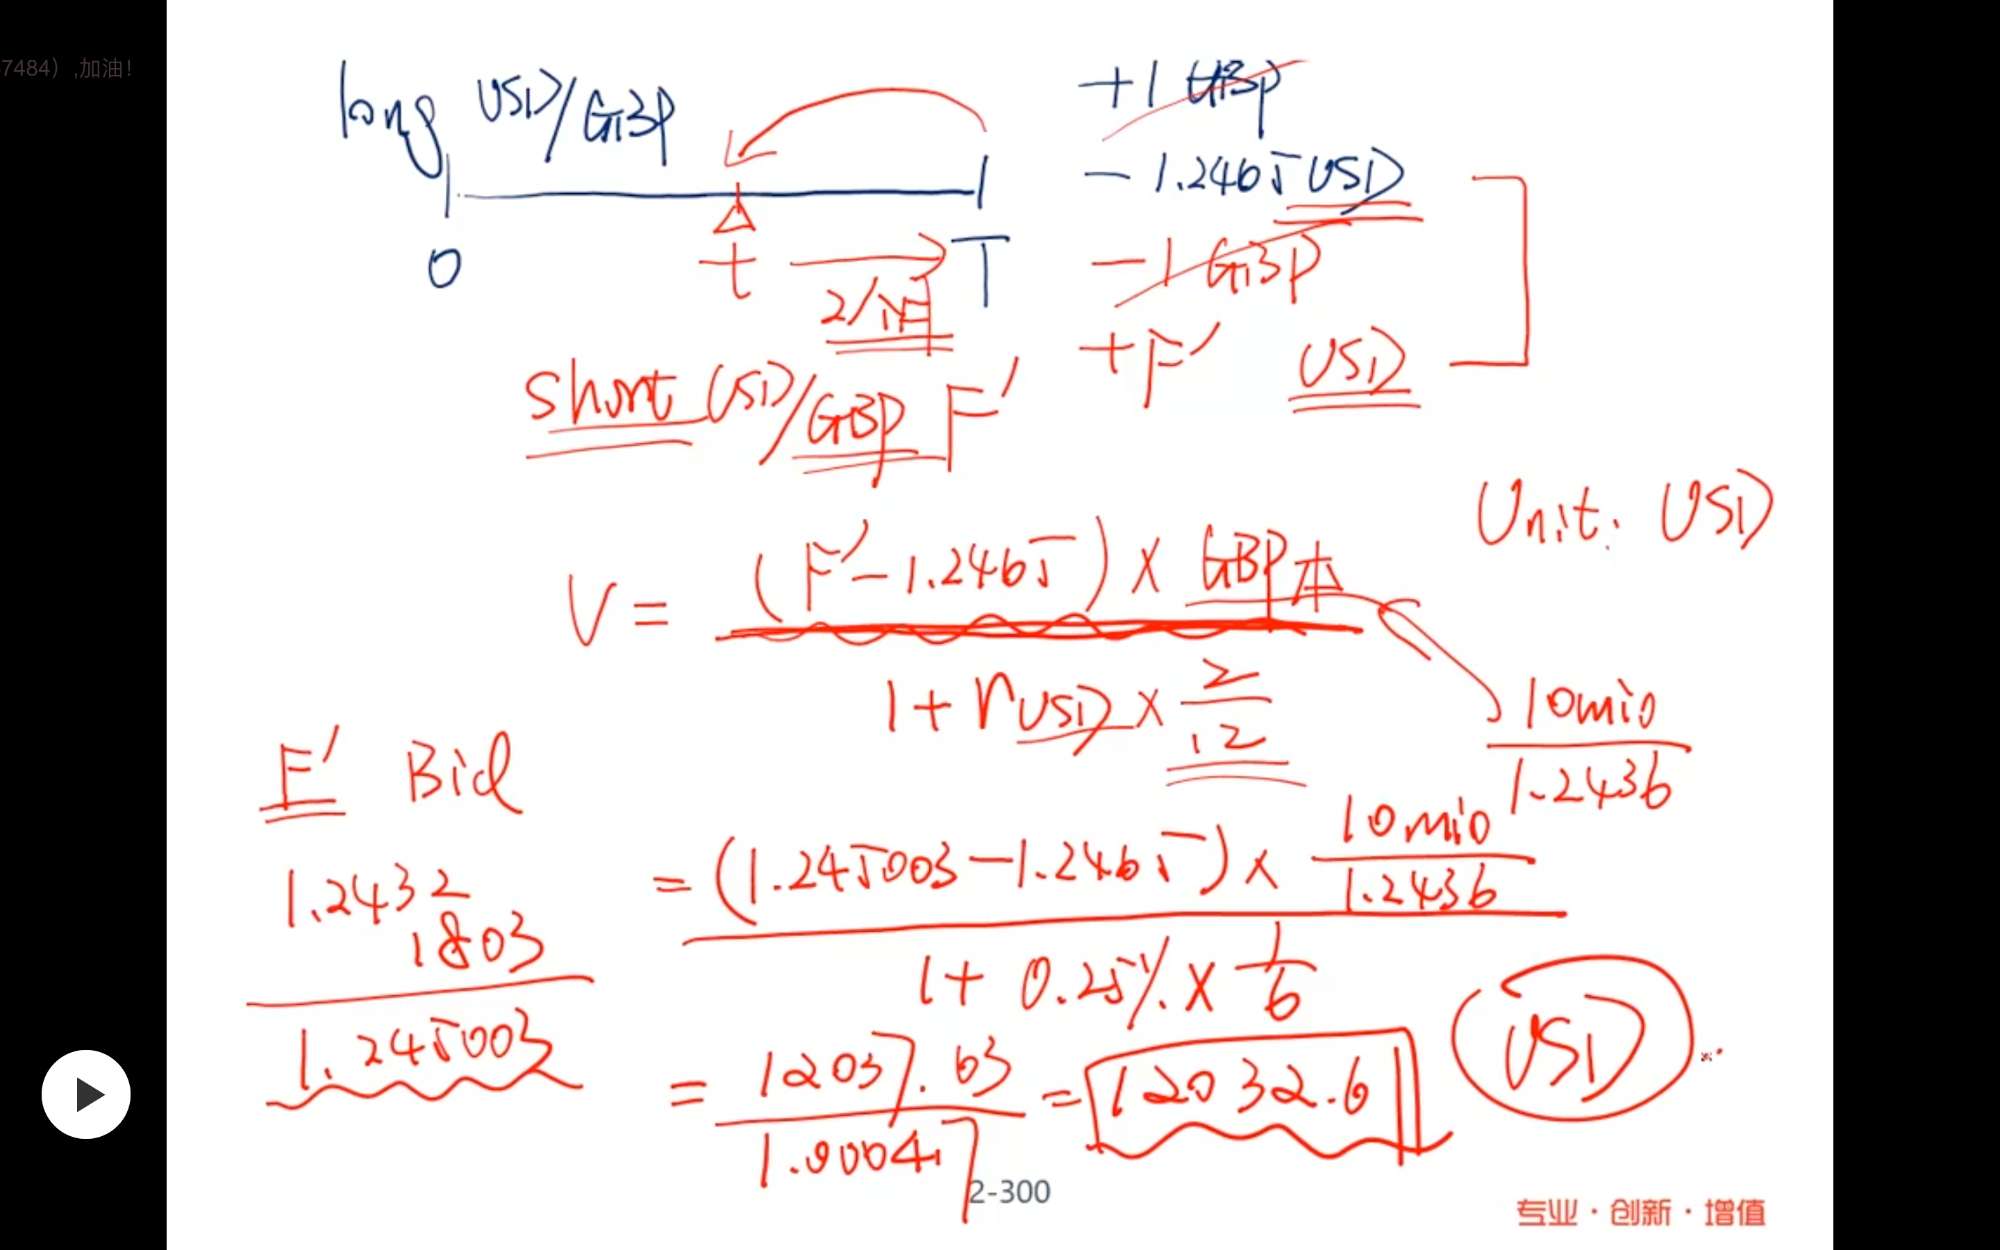 7484）,加油!
long USD/GBP
+1 GBP
- 1.2465 USD
0 t T
2个月
-1 GBP
+F' USD
short USD/GBP F'
Unit: USD
V = (F' - 1.2465) × GBP本
1 + rUSD × 2/12
10mio
1.2436
F' Bid
1.2432
1803
1.245003
= (1.245003 - 1.2465) × 10mio/1.2436
1 + 0.25% × 1/6
= 12037.63/1.000417 = 12032.6 USD
2-300
专业·创新·增值